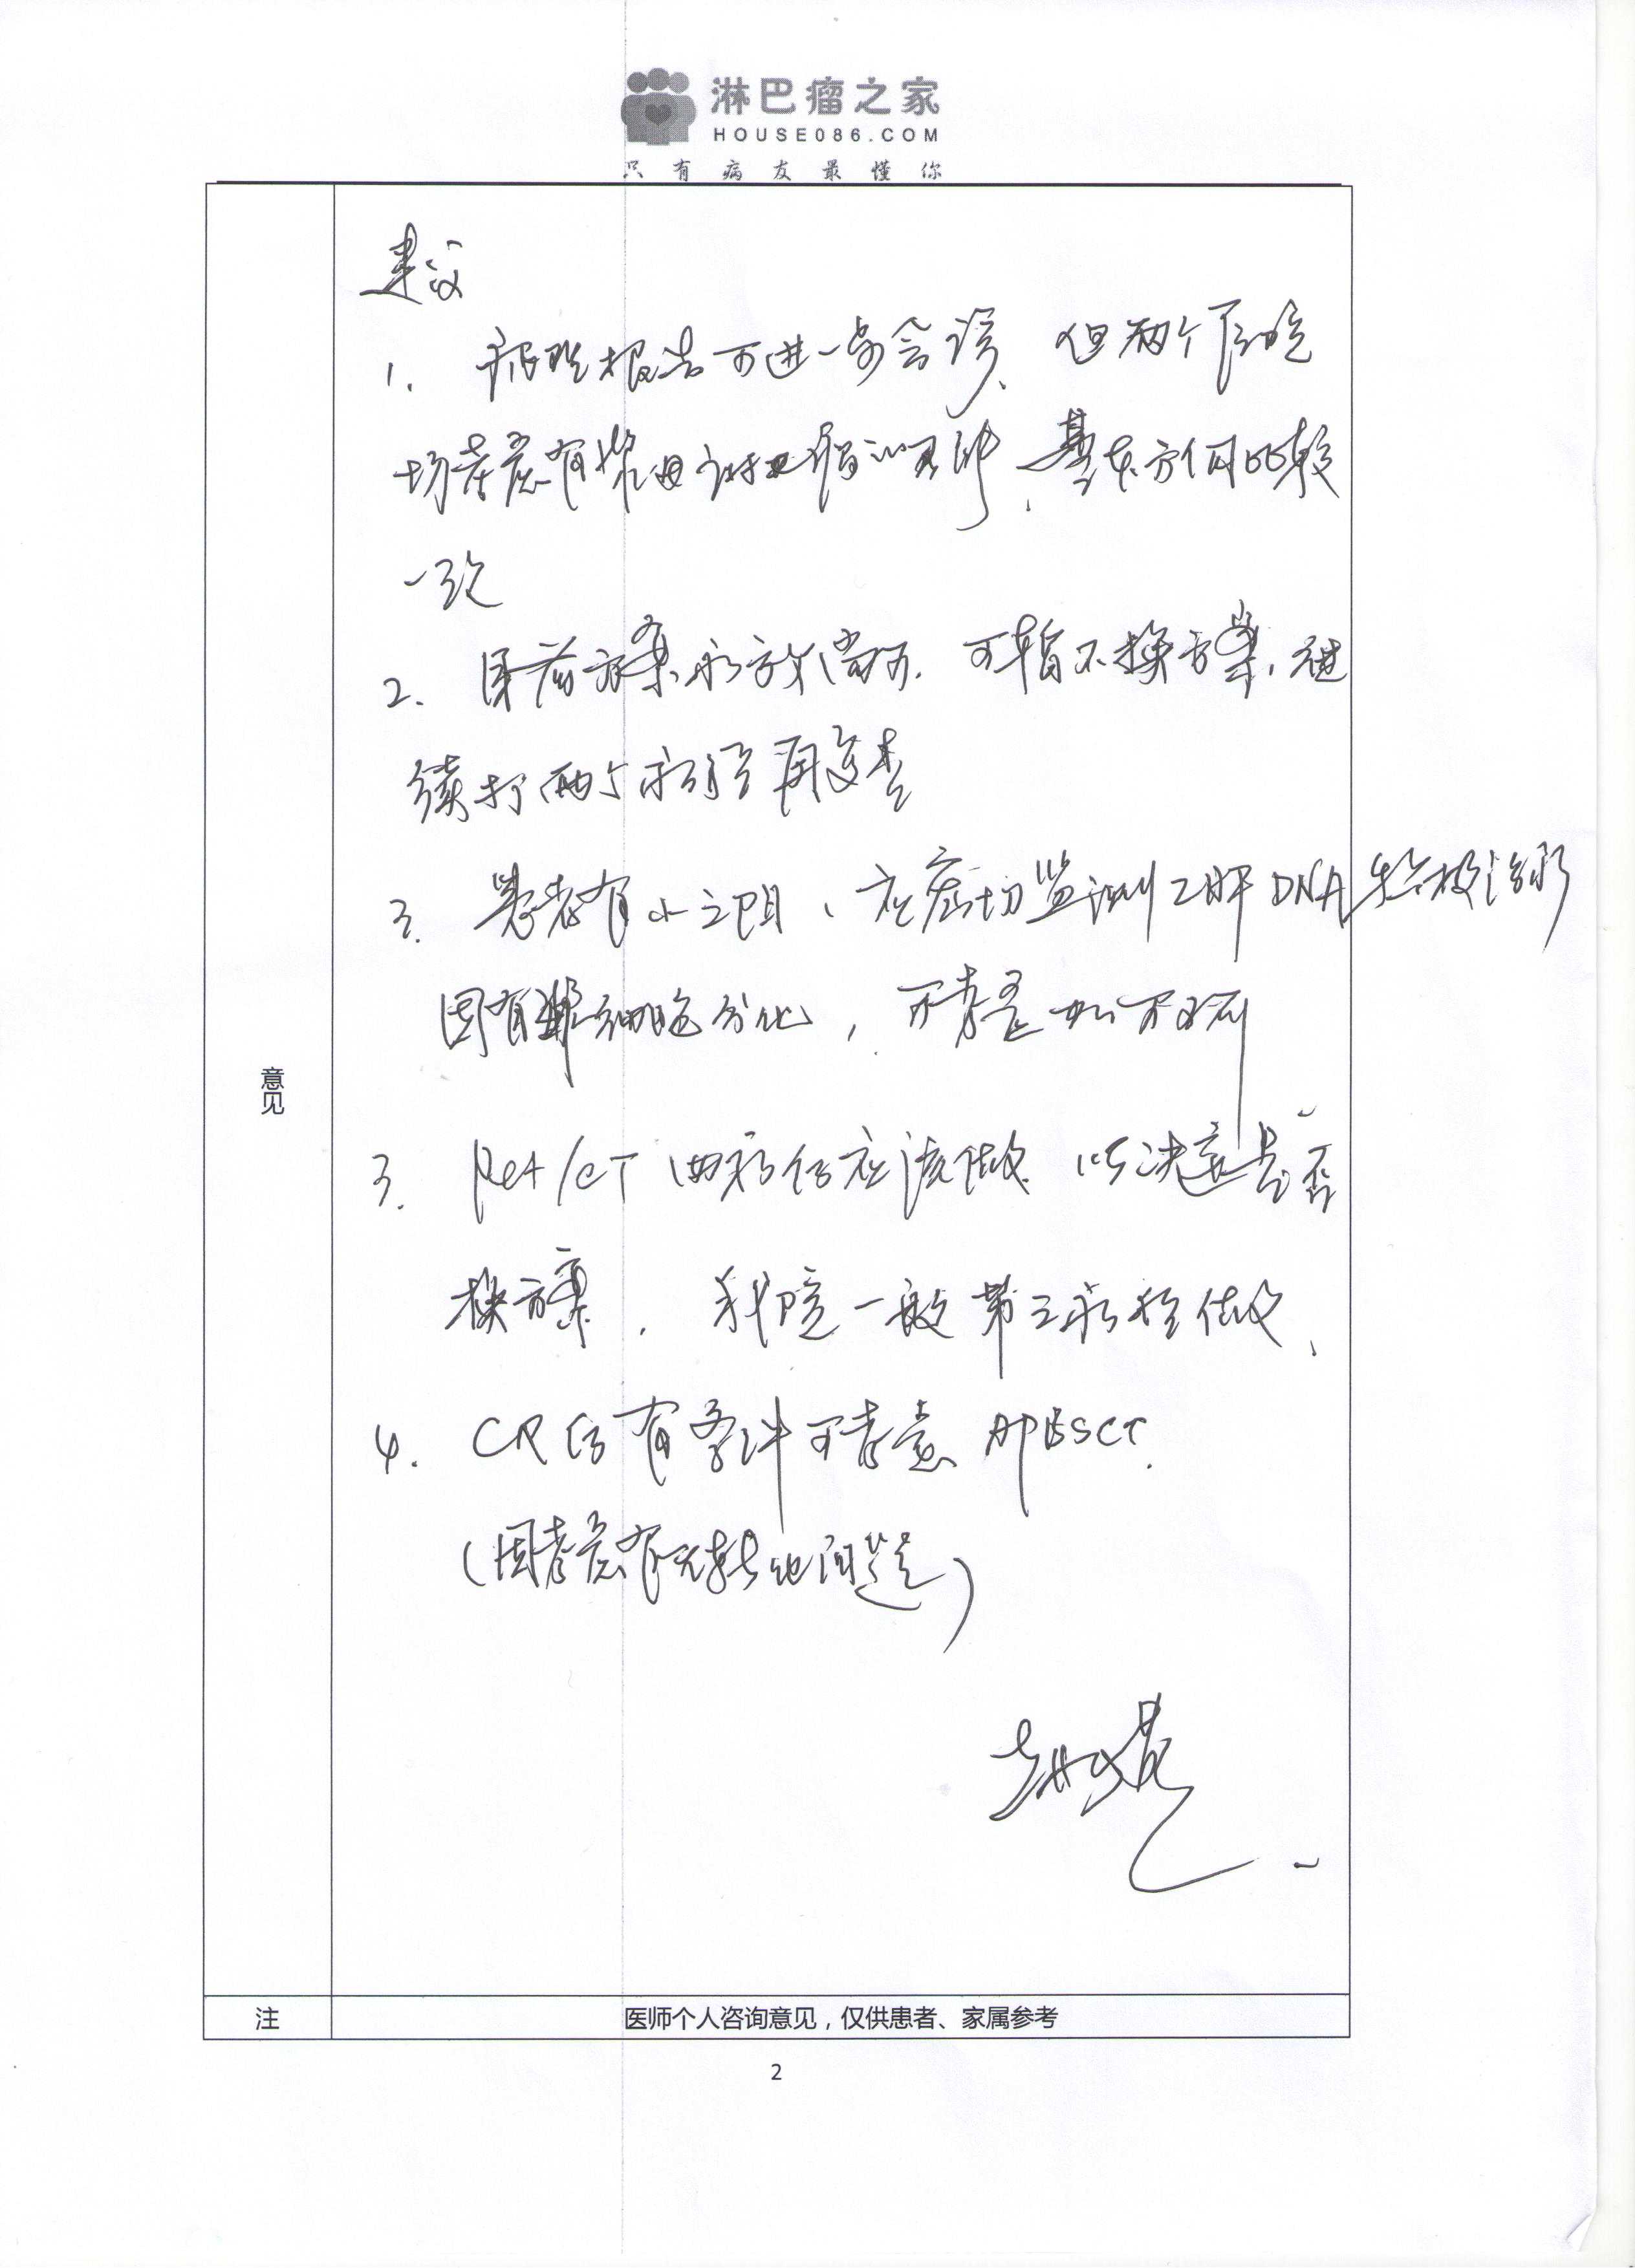 淋巴瘤之家
HOUSE086.COM
只有病友最懂你
建议
1. 病理报告可进一步会诊、但两个医院
均考虑有浆母 ，基本方向比较
一致
2. 目前方案疗效尚可. 可暂不换方案，继
续打两个疗程再复查
3. 患者有小三阳、应密切监测乙肝DNA 积极治疗
因有浆细胞分化，可考虑
3. Pet/CT 四疗后应该做 以决定是否
换方案. 我院一般第三疗程做、
4. CR后有条件可考虑 APBSCT.
(因考虑有无转化问题)
意见
注 医师个人咨询意见，仅供患者、家属参考
2